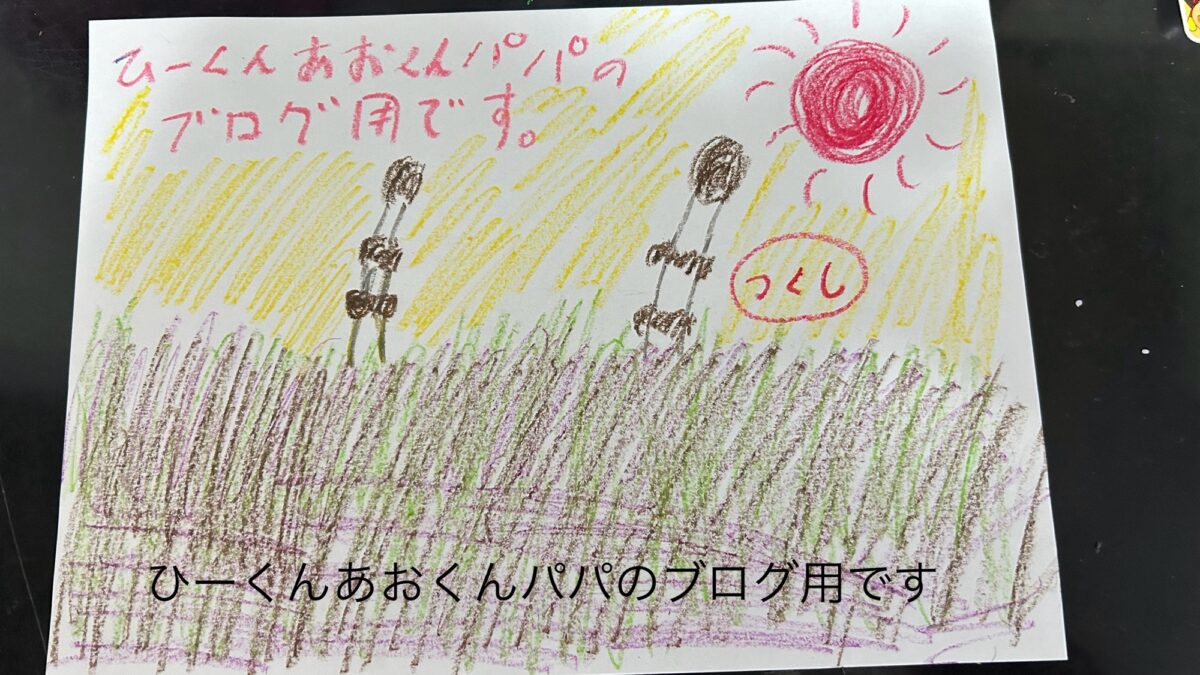 ひーくんあおくんパパの
ブログ用です。
つくし
ひーくんあおくんパパのブログ用です